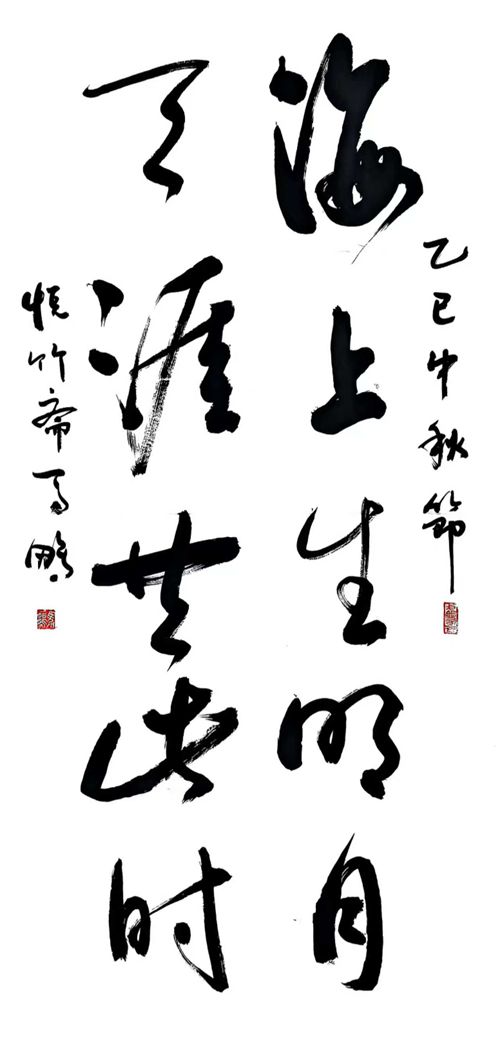 乙巳中秋節
海上生明月
天涯共此时
悦竹斋马鹏